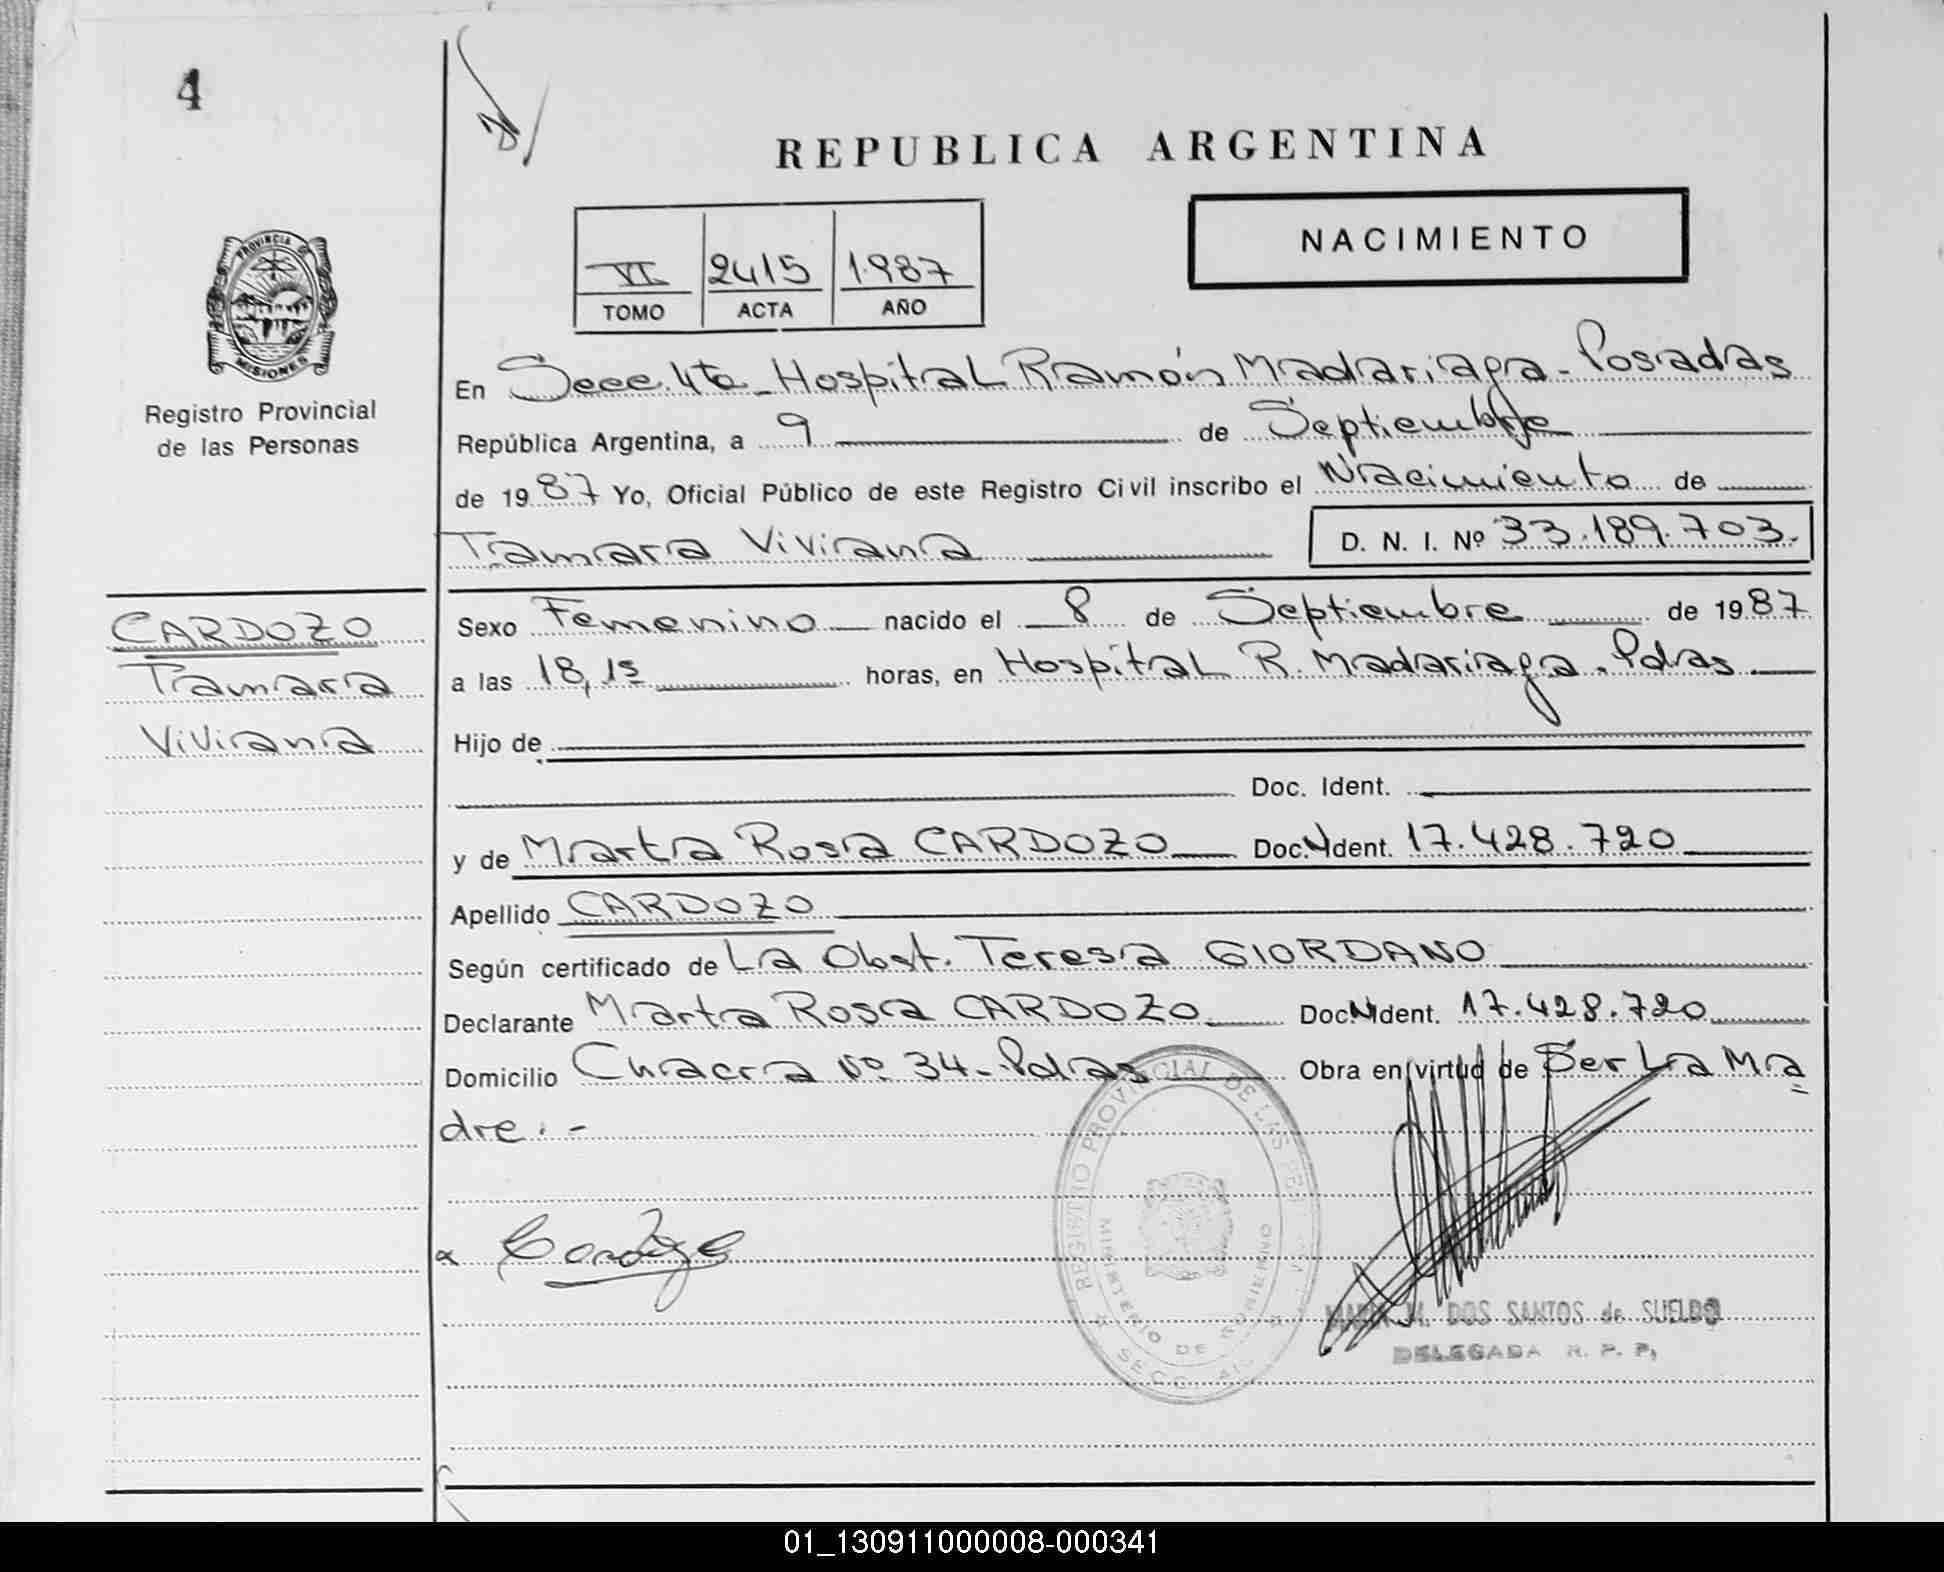 4
REPUBLICA ARGENTINA
NACIMIENTO
VI 2415 1987
TOMO ACTA AÑO
PROVINCIA D
MISIONES
Registro Provincial
de las Personas
CARDOZO
Tamara
Viviana
En Secc. 4ta - Hospital Ramón Madariaga - Posadas
República Argentina, a 9 de Septiembre
de 1987 Yo, Oficial Público de este Registro Civil inscribo el Nacimiento de
Tamara Viviana D. N. I. Nº 33.189.703.
Sexo Femenino nacido el 8 de Septiembre de 1987
a las 18,15 horas, en Hospital R. Madariaga - Pdas
Hijo de
Doc. Ident.
y de Marta Rosa CARDOZO Doc. Ident. 17.428.720
Apellido CARDOZO
Según certificado de La Obst. Teresa GIORDANO
Declarante Marta Rosa CARDOZO Doc. Ident. 17.428.720
Domicilio Chacra Nº 34 - Pdas Obra en virtud de Ser La Ma
dre. -
Cardozo
REGISTRO PROVINCIAL DE LAS PER
MINISTERIO DE GOBIERNO
SECC.
M. DOS SANTOS de SUELDO
DELEGADA R. P. P.
01_130911000008-000341